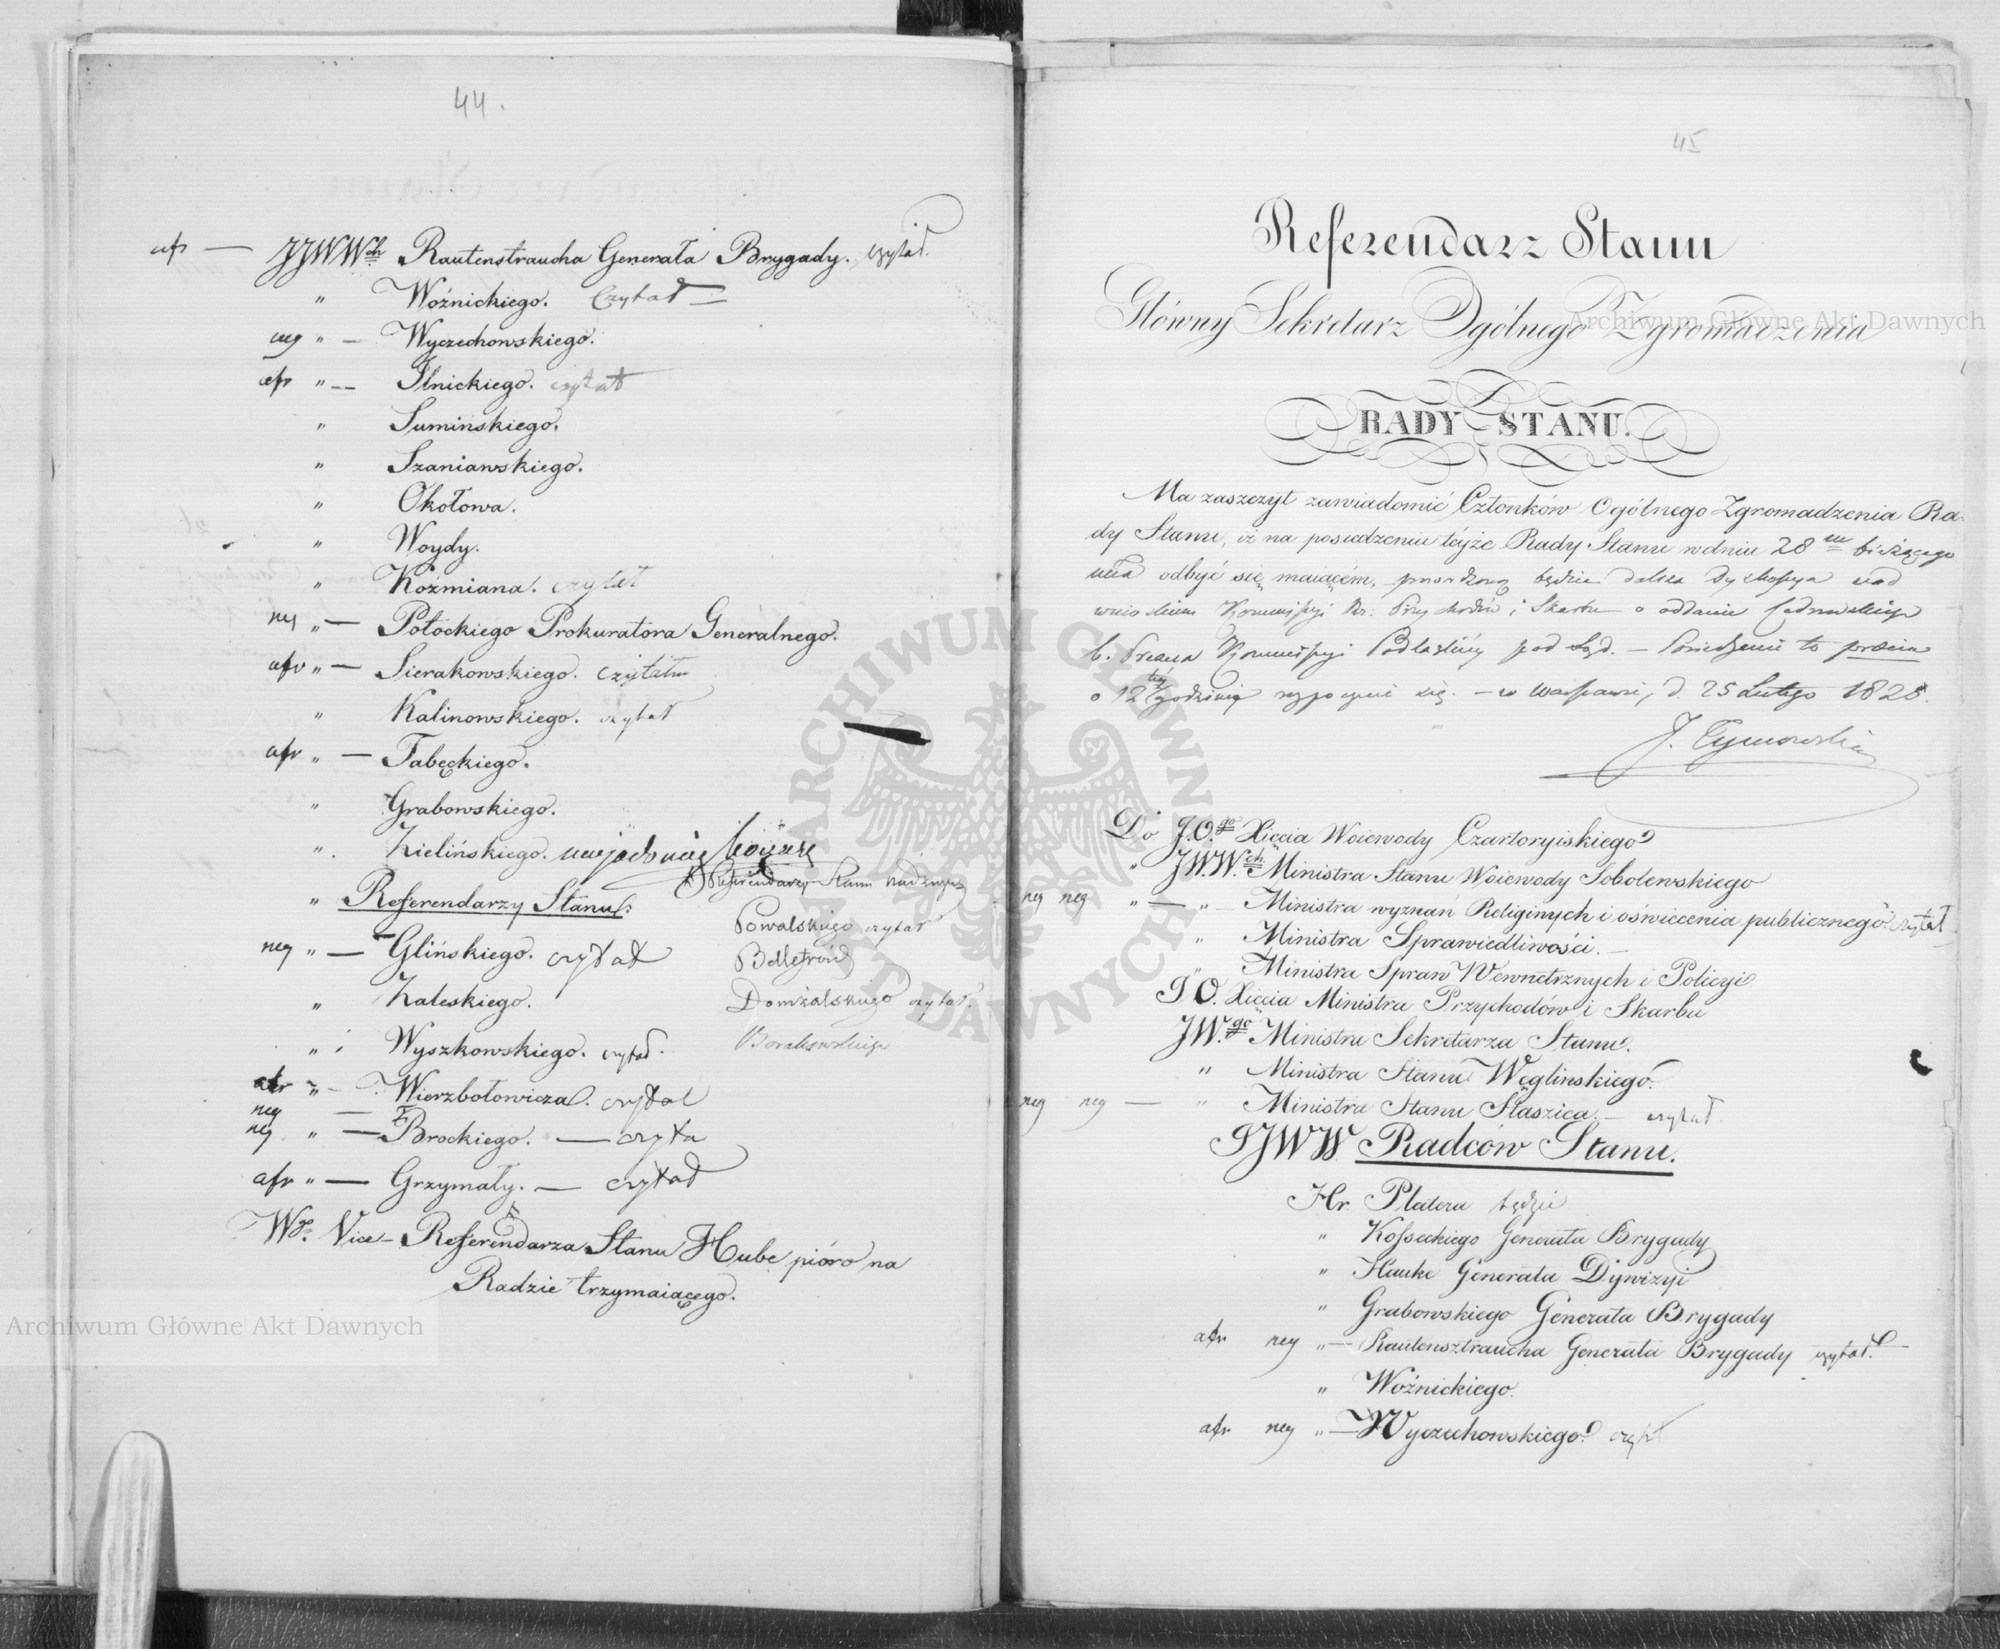 44.
afr — JJWW ch Rautenstraucha Generała Brygady. czytał.
" Woźnickiego. Czytał —
neg " — Wyczechowskiego.
afr " — Ilnickiego. czytał
" Sumińskiego.
" Szaniawskiego.
" Okołowa.
" Woydy.
" Koźmiana. czytał
neg " — Potockiego Prokuratora Generalnego.
afr " — Sierakowskiego. czytałm
" Kalinowskiego. czytał
afr " — Tabęckiego.
" Grabowskiego.
" Zielińskiego.
" Referendarzy Stanu:
neg " — Glińskiego. czytał
" Zaleskiego.
" Wyszkowskiego. czytał.
afr " — Wierzbołowicza. czytał
neg —
neg " — Brockiego. — czyta
afr " — Grzymały. — czytał
Wgo. Vice-Referendarza Stanu Hube pióro na
Radzie trzymaiącego.
Referendarzy Stanu nadzwycz
Powalskiego czytał
Domżalskiego czytał.
45
Referendarz Stanu
Główny Sekretarz Ogólnego Zgromadzenia
RADY STANU.
Ma zaszczyt zawiadomić Członków Ogólnego Zgromadzenia Ra-
dy Stanu, iż na posiedzeniu téyże Rady Stanu w dniu 28 m bieżącego
mca odbyć się maiącém, będzie dalsza Dyskusya nad
wnioskiem Kommissyi Rz: Przychodów i Skarbu o oddanie
b. Prezesa Kommissyi Podlaskiéy pod Sąd. — Posiedzenie to
o 12 tey godzinie rozpocznie się. — w Warszawie, d. 25 Lutego 1825.
J. Tymowski
Do J.O. go Xięcia Woiewody Czartoryiskiego
" JWW. ch Ministra Stanu Woiewody Sobolewskiego
neg neg " — " — Ministra wyznań Religinych i oświecenia publicznego. czytał
" Ministra Sprawiedliwości. —
" Ministra Spraw Wewnetrznych i Policyi.
J O. Xięcia Ministra Przychodów i Skarbu
JW. go Ministra Sekretarza Stanu.
" Ministra Stanu Węglinskiego.
neg neg — " Ministra Stanu Staszica. — czytał
JJWW Radców Stanu.
Hr. Platera będzie
" Kosseckiego Generała Brygady
" Hauke Generała Dywizyi
" Grabowskiego Generała Brygady
afr neg " — Rautensztraucha Generała Brygady czytał.
" Woźnickiego.
afr neg " — Wyczechowskiego. czytł
Archiwum Główne Akt Dawnych
Archiwum Główne Akt Dawnych
ARCHIWUM GŁÓWNE AKT DAWNYCH